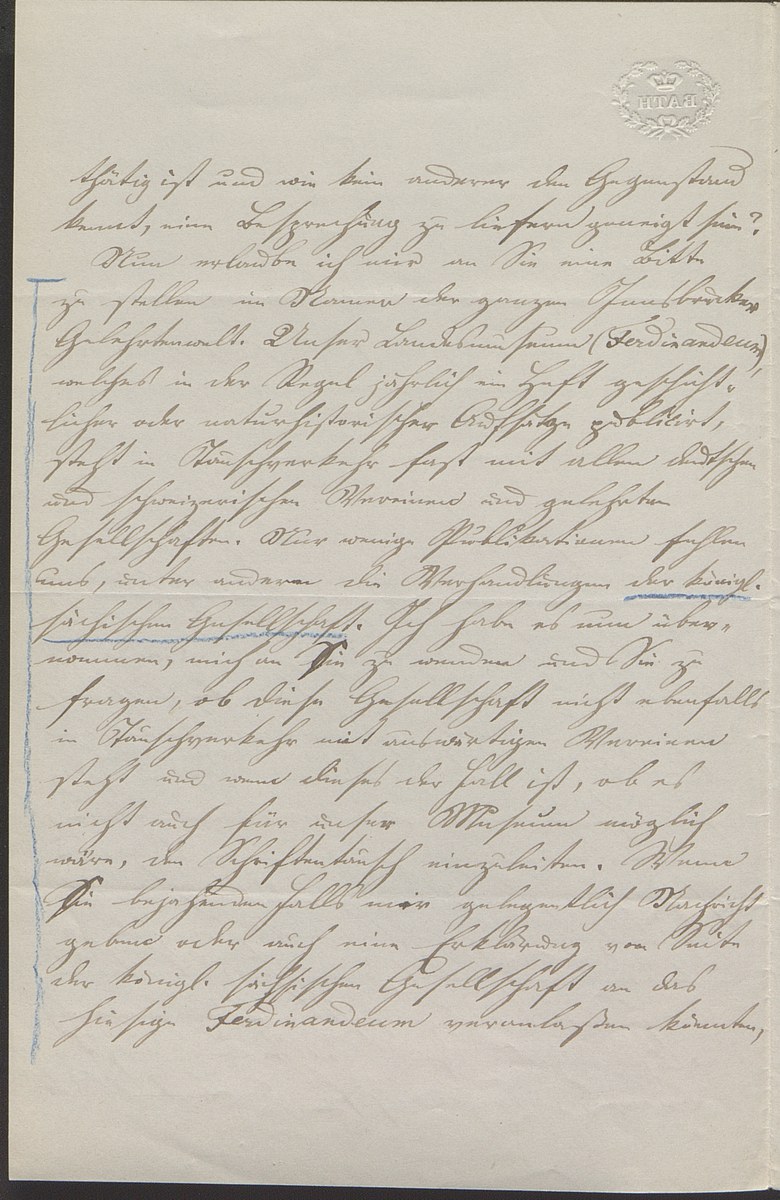 BATH
thätig ist und wie kein anderer den Gegenstand
kennt, eine Besprechung zu liefern geneigt sein?
Nun erlaube ich mir an Sie eine Bitte
zu stellen im Namen der ganzen Innsbrucker
Gelehrtenwelt. Unser Landesmuseum (Ferdinandeum),
welches in der Regel jährlich ein Heft geschicht-
licher oder naturhistorischer Aufsätze publicirt,
steht in Tauschverkehr fast mit allen deutschen
und schweizerischen Vereinen und gelehrten
Gesellschaften. Nur wenige Publikationen fehlen
uns, unter anderen die Verhandlungen der königl.
sächischen Gesellschaft. Ich habe es nun über-
nommen, mich an Sie zu wenden und Sie zu
fragen, ob diese Gesellschaft nicht ebenfalls
in Tauschverkehr mit auswärtigen Vereinen
steht und wenn dieses der Fall ist, ob es
nicht auch für unser Museum möglich
wäre, den Schriftentausch einzuleiten. Wenn
Sie bejahenden Falls mir gelegentlich Nachricht
geben oder auch eine Erklärung von Seite
der königl. sächsischen Gesellschaft an das
hiesige Ferdinandeum veranlaßen könnten,